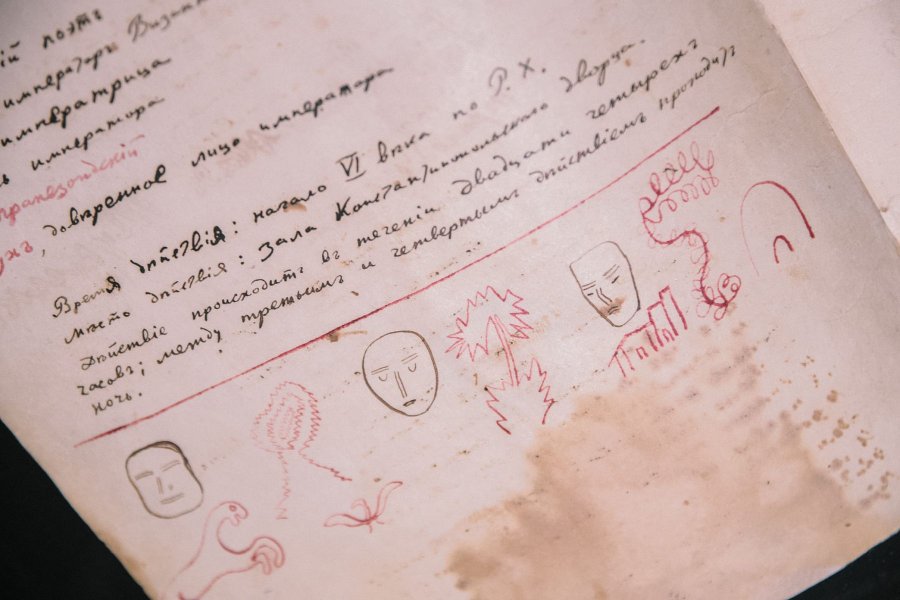 ій поэтъ
императоръ Визант
императрица
ь императора
трапезондскій
ухъ, довѣренное лицо императора
Время дѣйствія: начало VI вѣка по Р. Х.
Мѣсто дѣйствія: Зала Константинопольскаго дворца.
Дѣйствіе происходитъ въ теченіи двадцати четырехъ
часовъ; между третьимъ и четвертымъ дѣйствіемъ проходитъ
ночь.